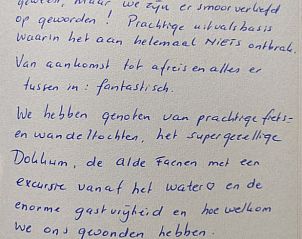 geweest, maar we zijn er smoorverliefd
op geworden! Prachtige uitvalsbasis
waarin het aan helemaal NIETS ontbrak.
Van aankomst tot afreis en alles er
tussen in: fantastisch.
We hebben genoten van prachtige fiets-
en wandeltochten, het supergezellige
Dokkum, de alde Faenen met een
excursie vanaf het water♡ en de
enorme gastvrijheid en hoe welkom
we ons gevonden hebben.